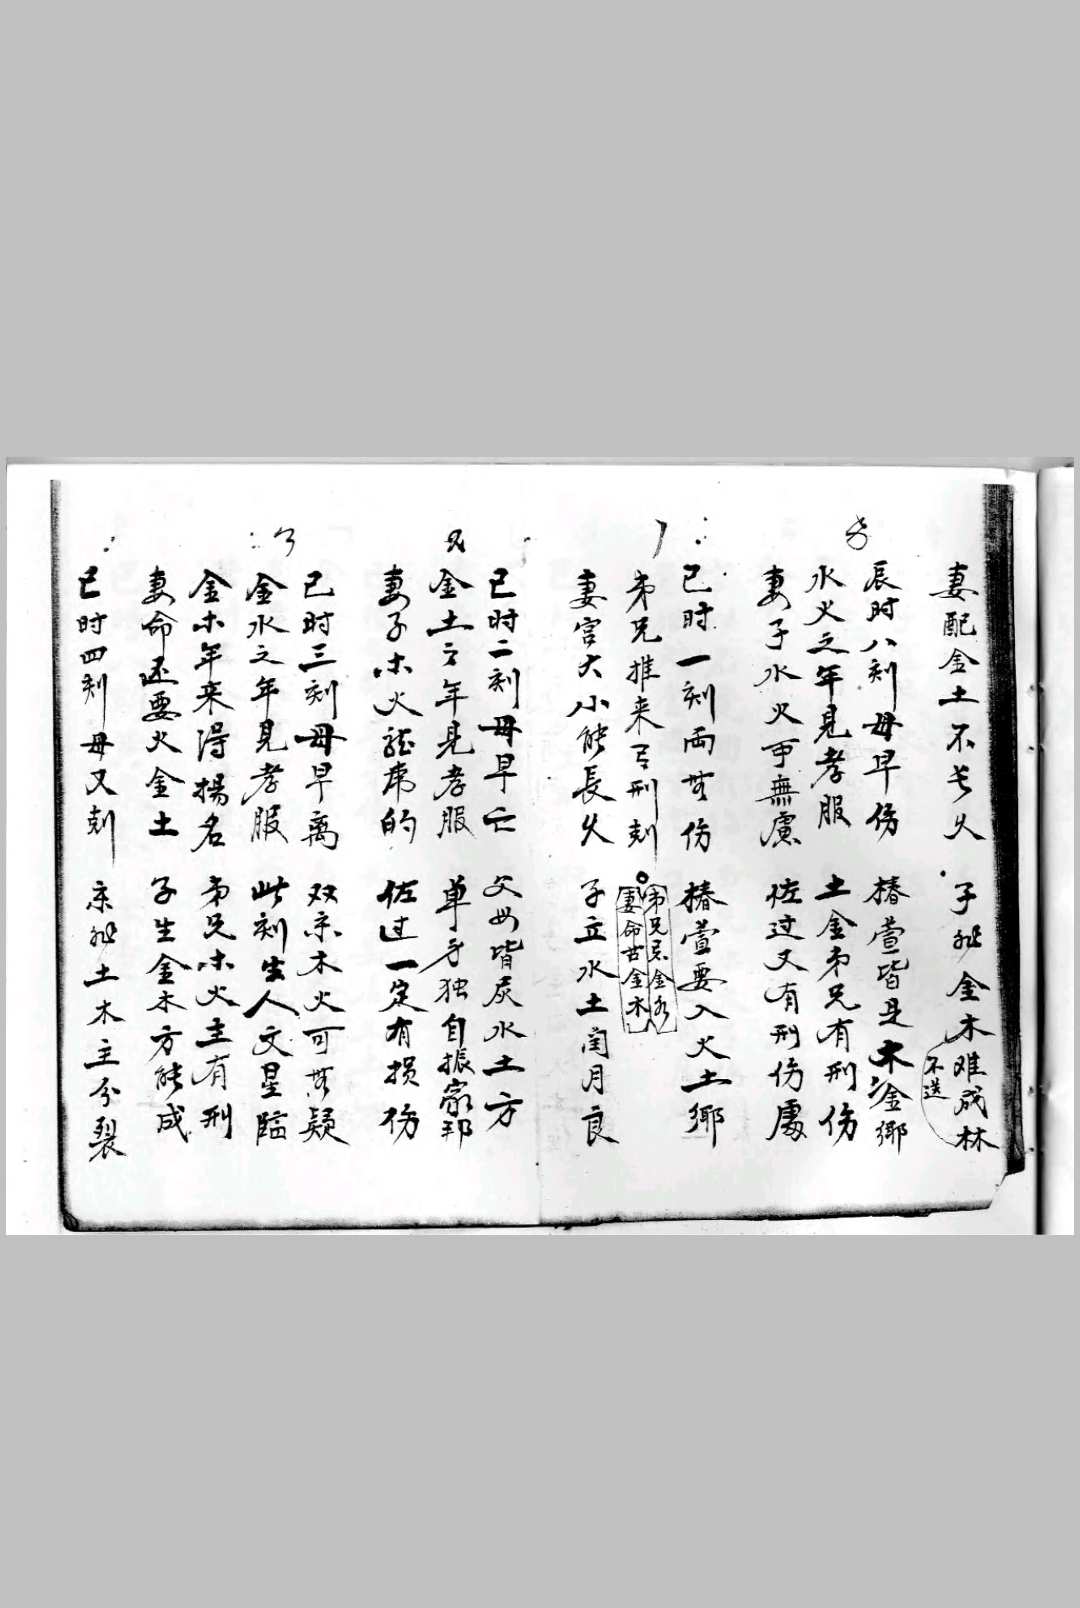 妻配金土不长久 子 金木难成林
不送
辰时八刻母早伤 椿萱皆是木金鄉
水火之年見孝服 土金弟兄有刑伤
妻子水火 無慮 硅过又有刑伤處
巳时一刻両 伤 椿萱要入火土鄉
弟兄推来 刑刻
弟兄 金水
妻命 金木
妻宫大小能長久 子立水土闰月良
巳时二刻母早亡 父母皆 水土方
金土之年見孝服 单身独自振家邦
妻子木火 的 硅过一定有损伤
巳时三刻母早离 双亲木火可 疑
金水之年見孝服 此刻生人文星臨
金木年来得揚名 弟兄木火主有刑
妻命还要火金土 子生金木方能成
巳时四刻母又剋 亲 土木主分裂